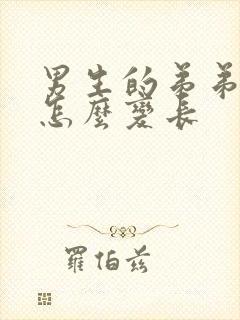 男生的弟弟
怎麼變長
羅伯茲